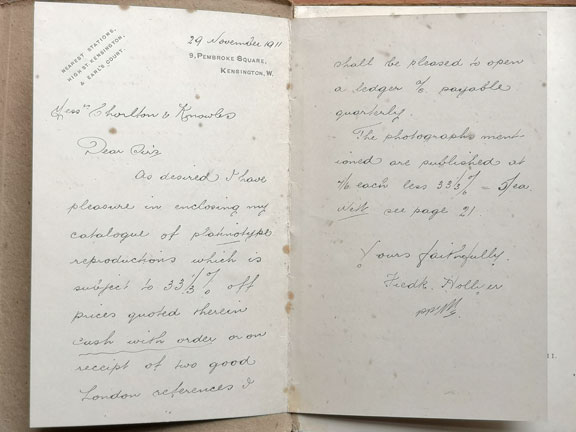 NEAREST STATIONS,
HIGH ST. KENSINGTON,
& EARL'S COURT.
29 November 1911
9, PEMBROKE SQUARE,
KENSINGTON, W.
Messrs Chorlton & Knowles
Dear Sirs
As desired I have
pleasure in enclosing my
catalogue of platinotype
reproductions which is
subject to 33⅓% off
prices quoted therein
cash with order or on
receipt of two good
London references I
shall be pleased to open
a ledger a/c. payable
quarterly.
The photographs ment
ioned are published at
7/6 each less 33⅓% = 5/ ea
see page 21.
Yours faithfully.
Fredk. Hollyer